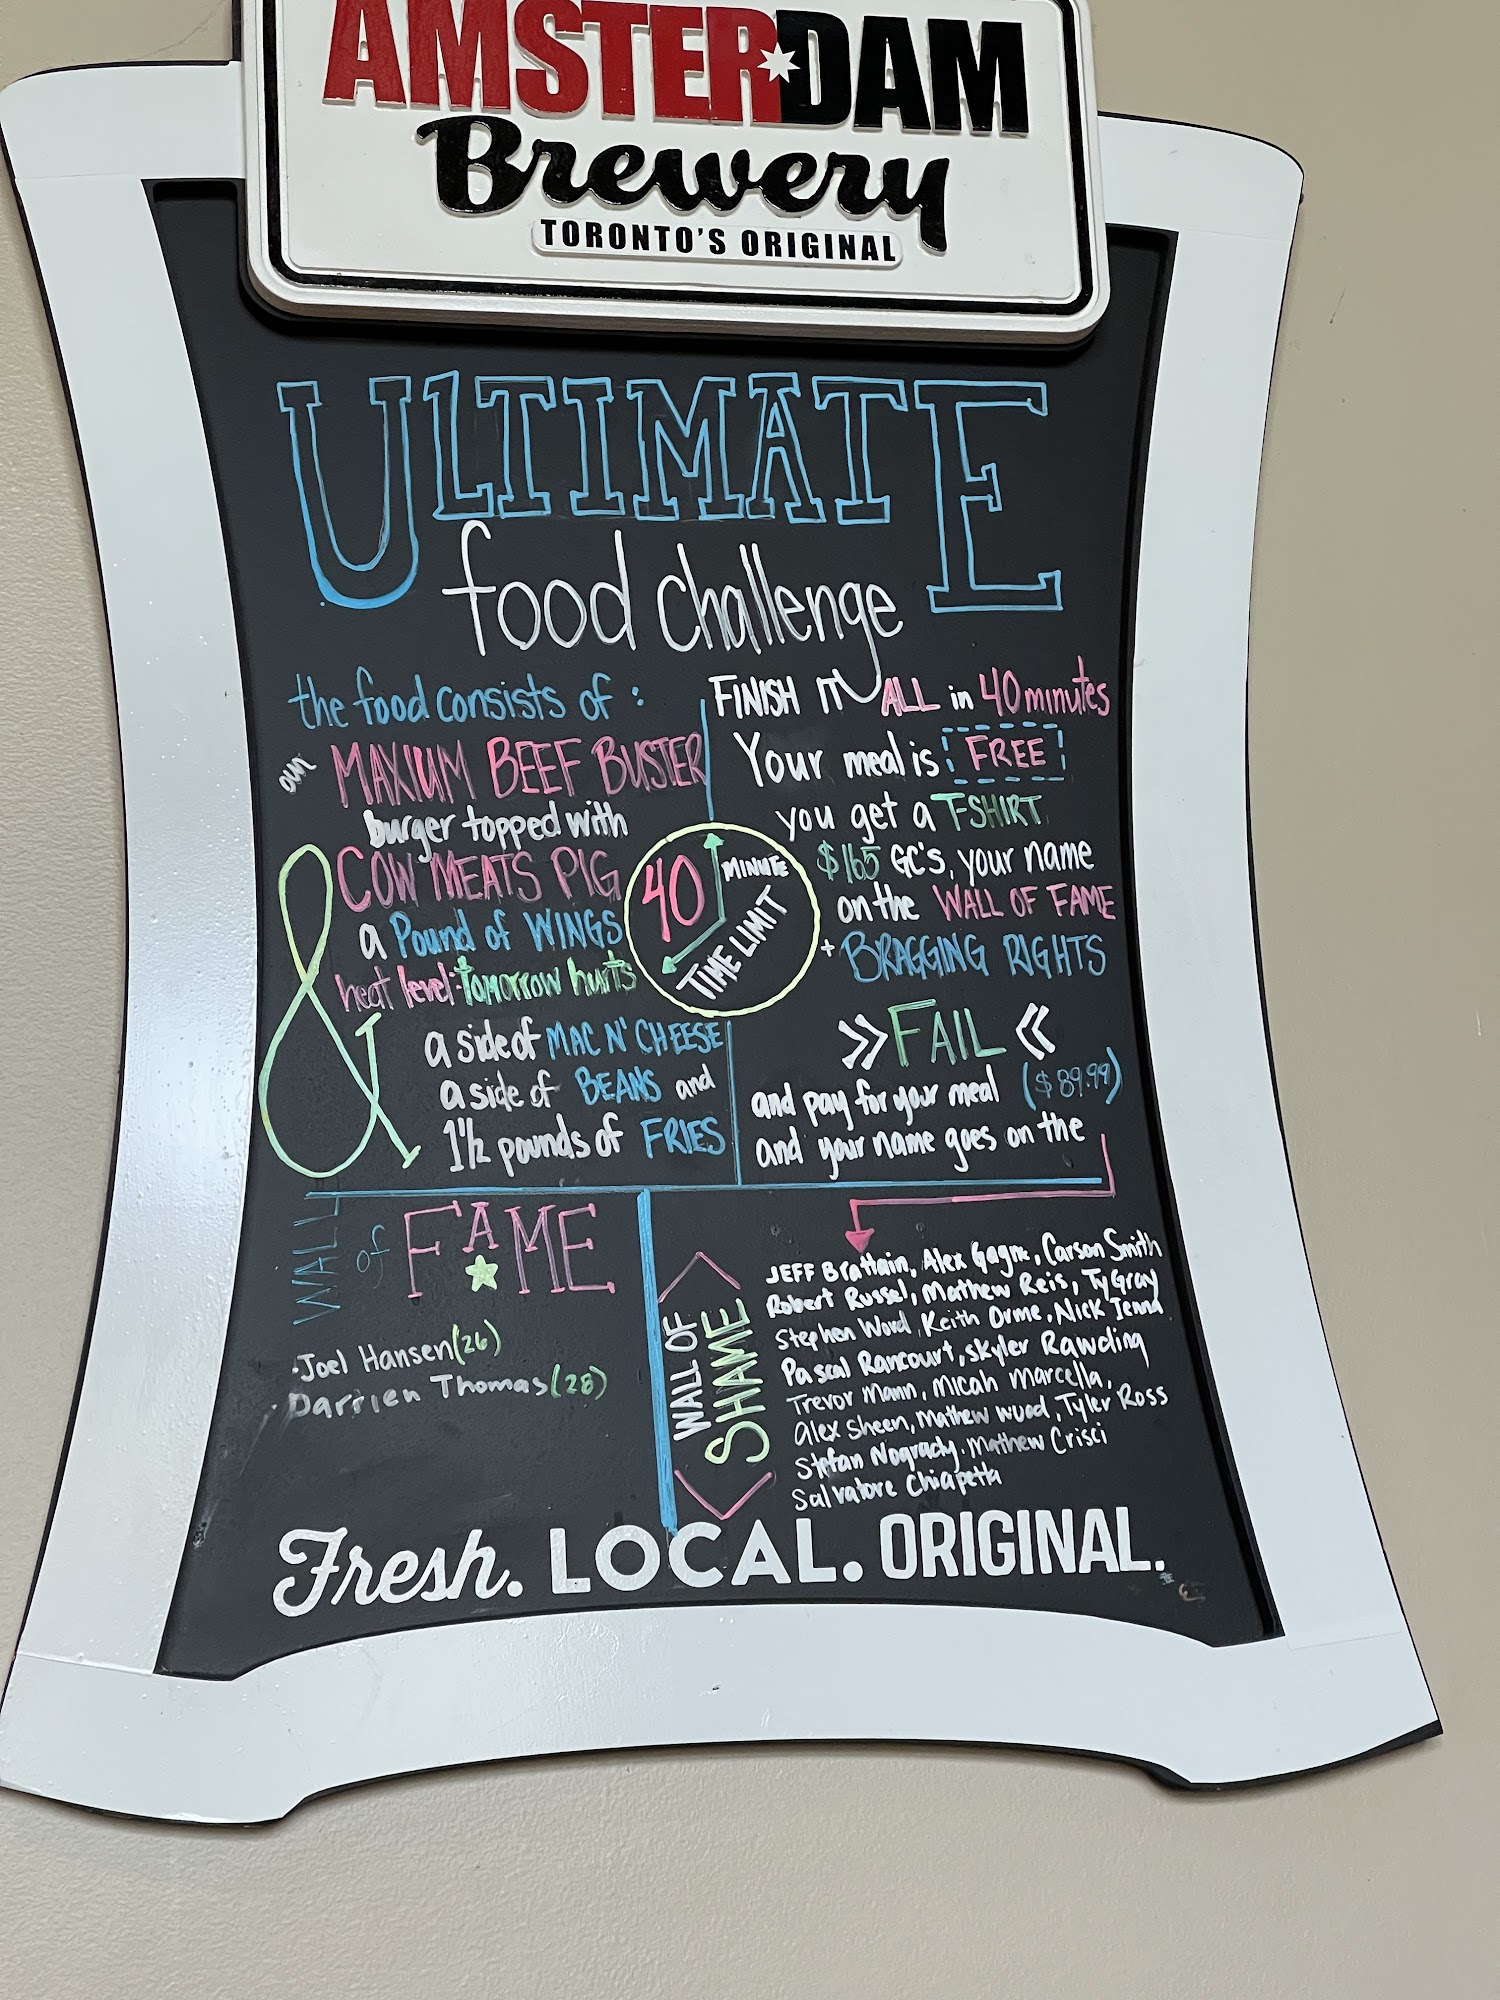 AMSTERDAM
Brewery
TORONTO'S ORIGINAL
ULTIMATE
food challenge
the food consists of :
our MAXIUM BEEF BUSTER
burger topped with
COW MEATS PIG
a Pound of WINGS
heat level: tomorrow hurts
&
a side of MAC N' CHEESE
a side of BEANS and
1 1/2 pounds of FRIES
40 MINUTE
TIME LIMIT
FINISH IT ALL in 40 minutes
Your meal is FREE
you get a T-SHIRT
$165 GC's, your name
on the WALL OF FAME
+ BRAGGING RIGHTS
>> FAIL <<
and pay for your meal ($89.99)
and your name goes on the
WALL of FAME
· Joel Hansen (26)
· Darrien Thomas (28)
WALL OF
SHAME
JEFF Brattain, Alex Gagne, Carson Smith
Robert Russel, Mathew Reis, Ty Gray
Stephen Word, Keith Orme, Nick Ienna
Pascal Rancourt, Skyler Rawding
Trevor Mann, Micah Marcella,
Alex Sheen, Mathew Wood, Tyler Ross
Stefan Nogrady. Mathew Crisci
Salvatore Chiapetta
Fresh. LOCAL. ORIGINAL.